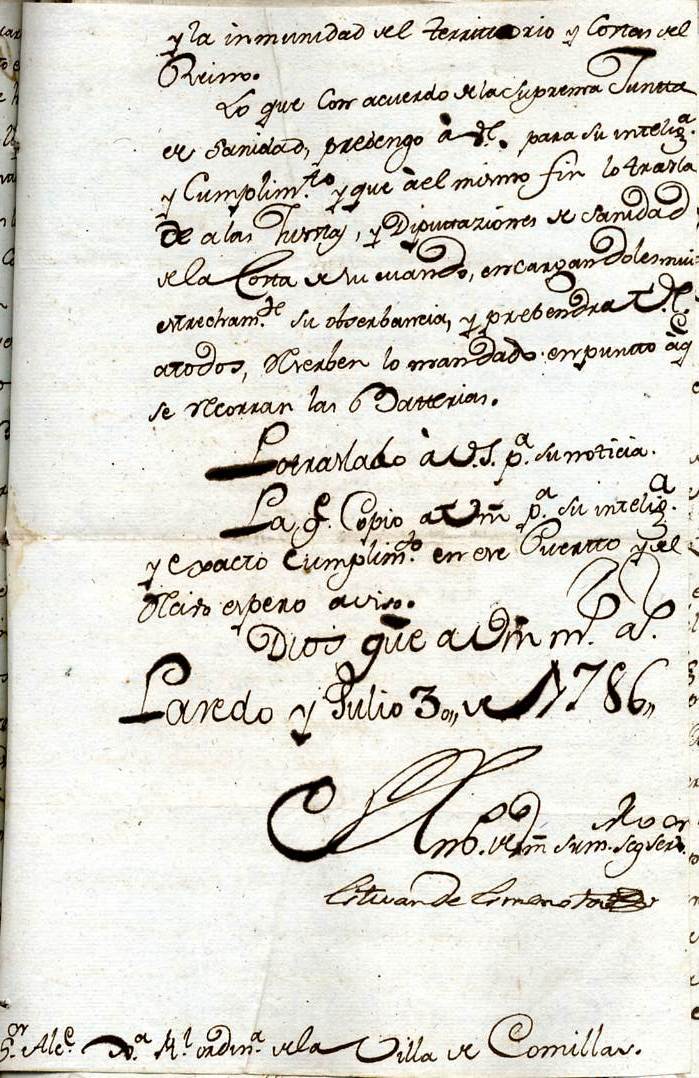 y la inmunidad del territorio y Costas del
Reino.
Lo que con acuerdo de la Suprema Juntta
de Sanidad, prebengo à V.S. para su intelig.ª
y Cumplim.to y que à el mismo fin lo trasla
de a las Justtas, y Diputtaziones de Sanidad
de la Costa de su mando, encargandoles mui
estrecham.te su obserbancia, y prebendra V.S.
a todos, obserben lo mandado en puntto à q.e
se recorran las Batterias.
Lo traslado à V.S. p.ª su noticia.
La q.e Copio a Vm p.ª su intelig.ª
y exacto Cumplim.to en ese Puertto y del
Recivo espero aviso.
Dios gūe a Vm m.s a.s
Laredo y Julio 3 de 1786
B. de Vm su m. seg. ser.or
S.or Alc.e R.l ordin.º de la Villa de Comillas.